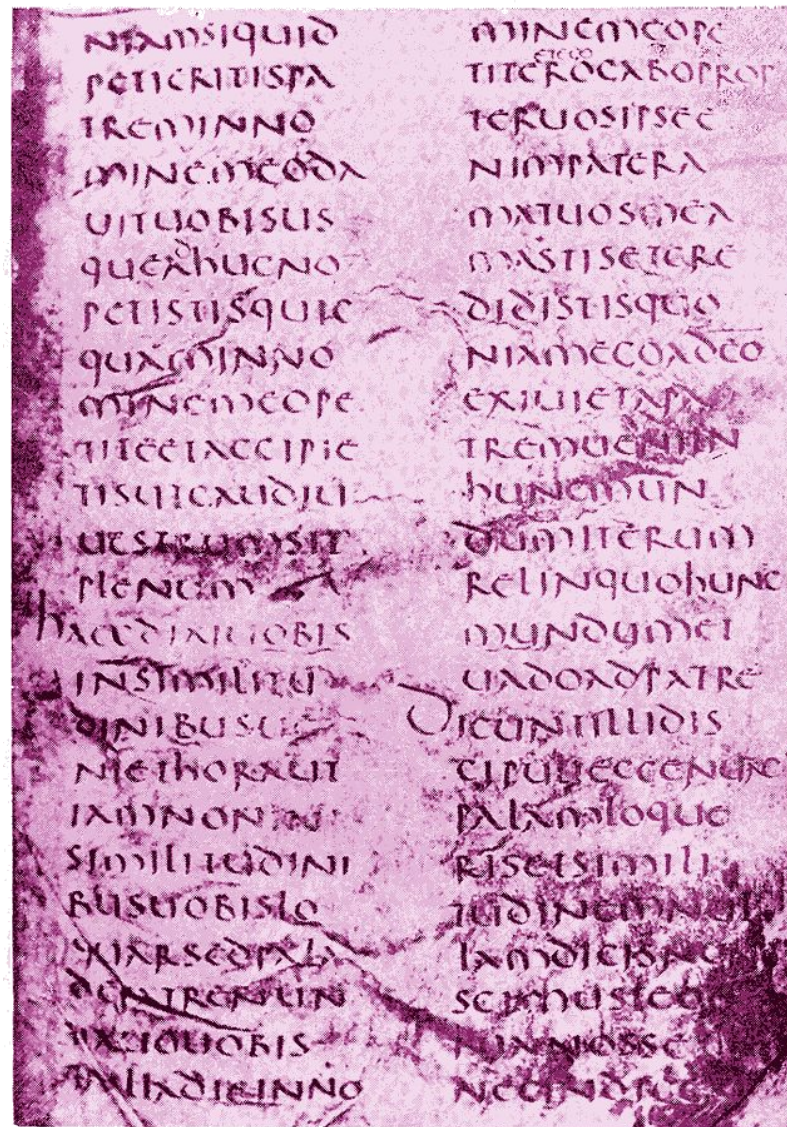 NIAMSIQUID
PETIERITISPA
TREMINNO
MINEMEODA
UITUOBISUS
QUEADHUCNO
PETISTISQUIC
QUAMINNO
MINEMEOPE
TITEETACCIPIE
TISUTCAUDIU
UESTRUMSIT
PLENUM
HAECDIXIUOBIS
INSIMILITU
DINIBUSUE
NIETHORAUT
IAMNONIN
SIMILITUDINI
BUSUOBISLO
QUARSEDPALA
DEPATRENUN
TIXIUOBIS
INILLADIEINNO
MINEMEOPE
ETEGO
TITEROCABOPROP
TERUOSIPSEE
NIMPATERA
MATUOSMEA
MASTISETCRE
DIDISTISQUO
NIAMEGOADEO
EXIUIETAPA
TREMUENIIN
HUNCMUN
DUMITERUM
RELINQUOHUNC
MUNDUMET
UADOADPATRE
DICUNTILLIDIS
CIPULIECCENUNC
PALAMLOQUE
RISETSIMILI
TUDINEMNUL
LAMDICISNC
SCIMUS
NECINDICE